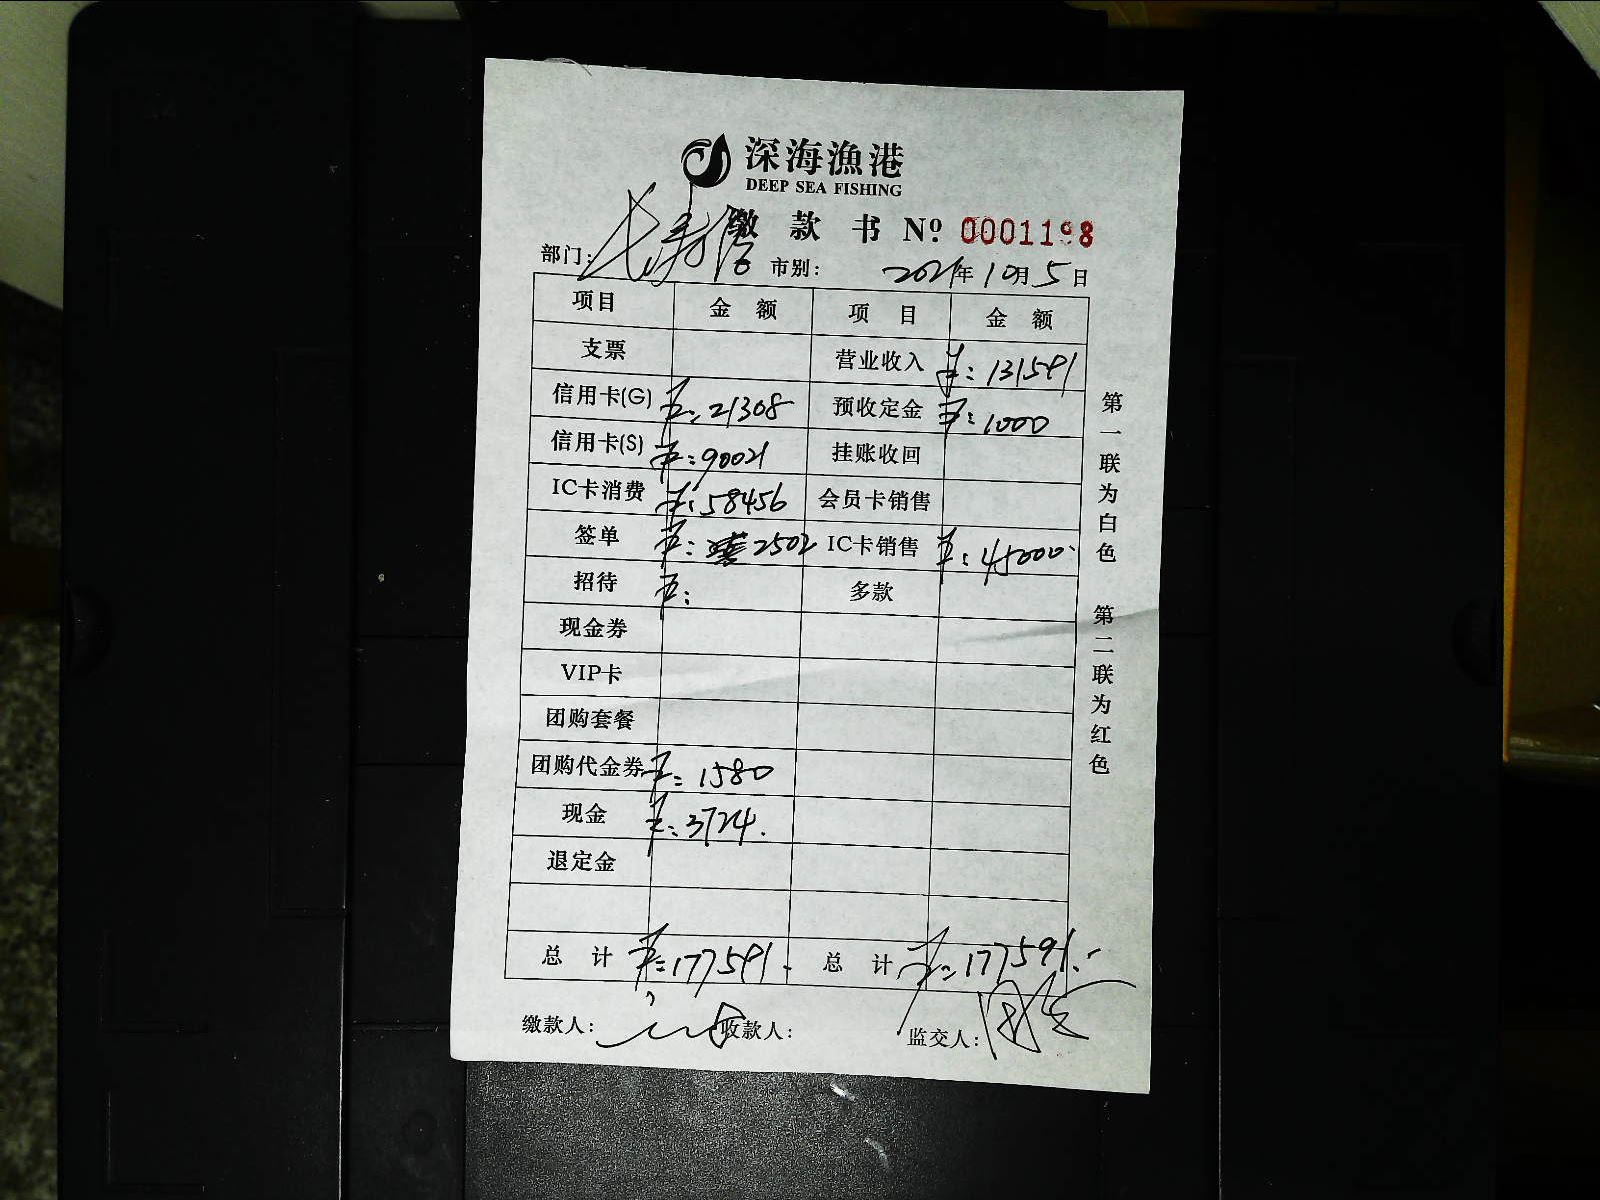 深海漁港
DEEP SEA FISHING
缴 款 书 Nº 0001198
部门： 市别： 2021年10月5日
项目 金 额 项 目 金 额
支票 营业收入 ¥：131591
信用卡(G) ¥：21308 预收定金 ¥：1000
信用卡(S) ¥：90021 挂账收回
IC卡消费 ¥：58456 会员卡销售
签单 ¥： 2502 IC卡销售 ¥：45000
招待 ¥： 多款
现金券
VIP卡
团购套餐
团购代金券 ¥：1580
现金 ¥：3724.
退定金
总 计 ¥：177591. 总 计 ¥：177591.-
缴款人： 收款人： 监交人：
第一联为白色 第二联为红色